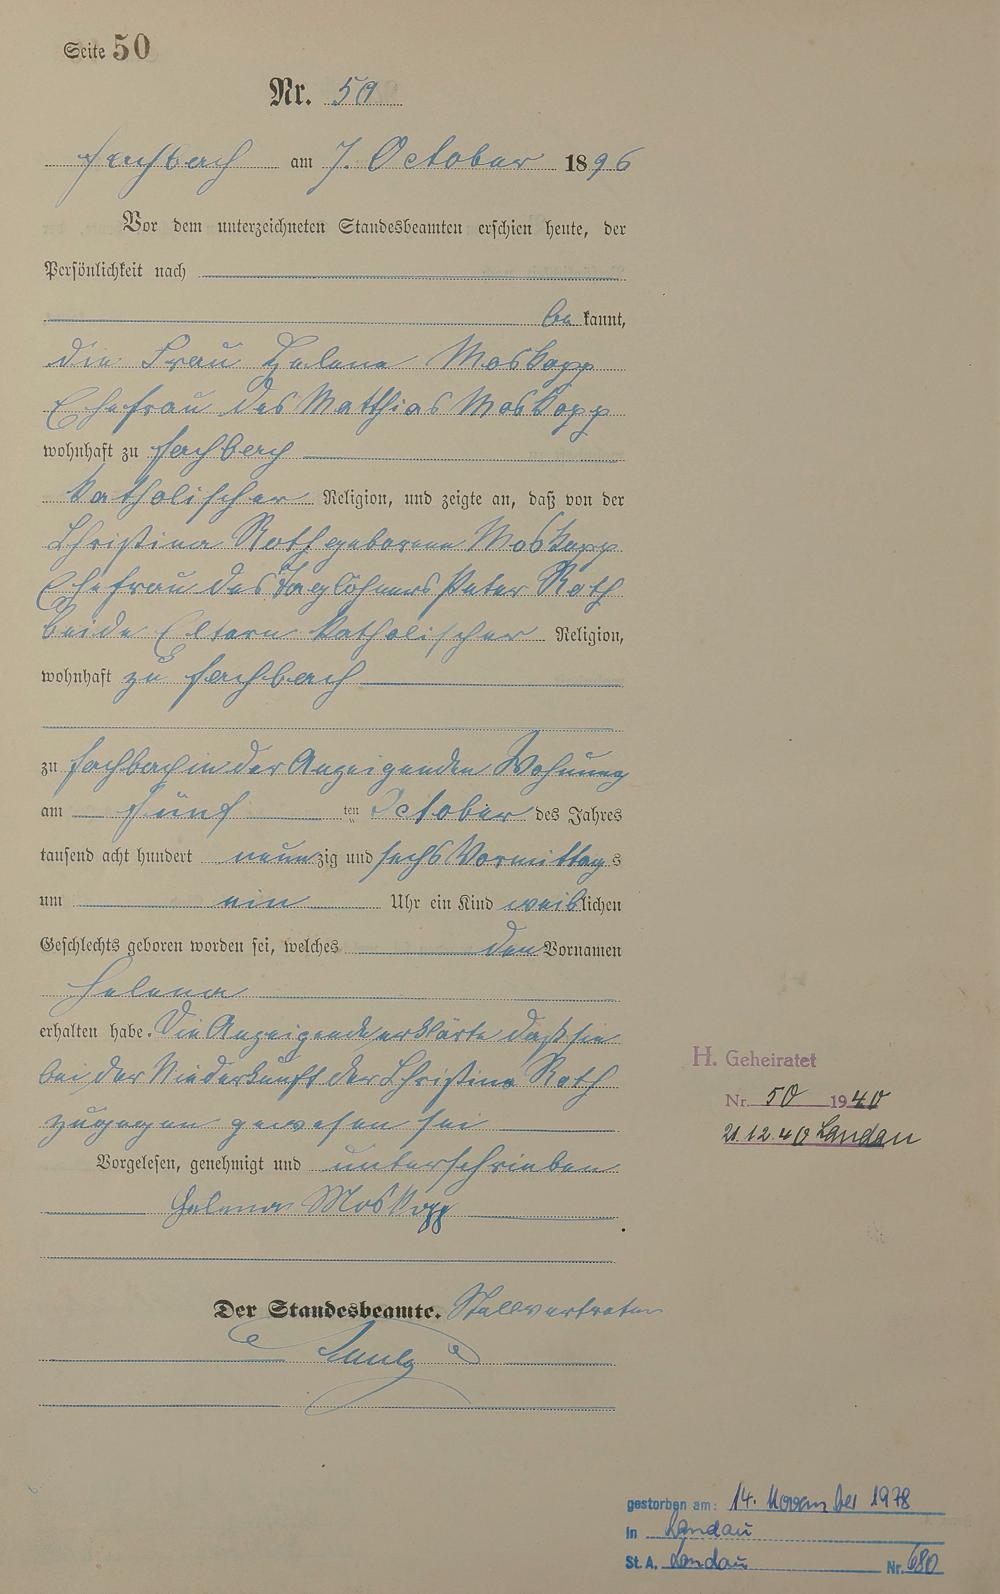 Seite 50
Nr. 50
Fachbach am 7. October 1896
Vor dem unterzeichneten Standesbeamten erschien heute, der
Persönlichkeit nach
bekannt,
die Frau Helena Moskopp
Ehefrau des Matthias Moskopp
wohnhaft zu Fachbach
katholischer Religion, und zeigte an, daß von der
Christina Roth geborene Moskopp
Ehefrau des Taglöhners Peter Roth
beide Eltern katholischer Religion,
wohnhaft zu Fachbach
zu Fachbach in der Anzeigenden Wohnung
am fünften October des Jahres
tausend acht hundert neunzig und sechs Vormittags
um ein Uhr ein Kind weiblichen
Geschlechts geboren worden sei, welches den Vornamen
Helena
erhalten habe. Die Anzeigende erklärte daß sie
bei der Niederkunft der Christina Roth
zugegen gewesen sei
Vorgelesen, genehmigt und unterschrieben
Helena Moskopp
Der Standesbeamte. Stellvertreter
H. Geheiratet
Nr. 50 1940
21.12.40 Landau
gestorben am: 14. November 1978
in Landau
St.A. Landau Nr. 680